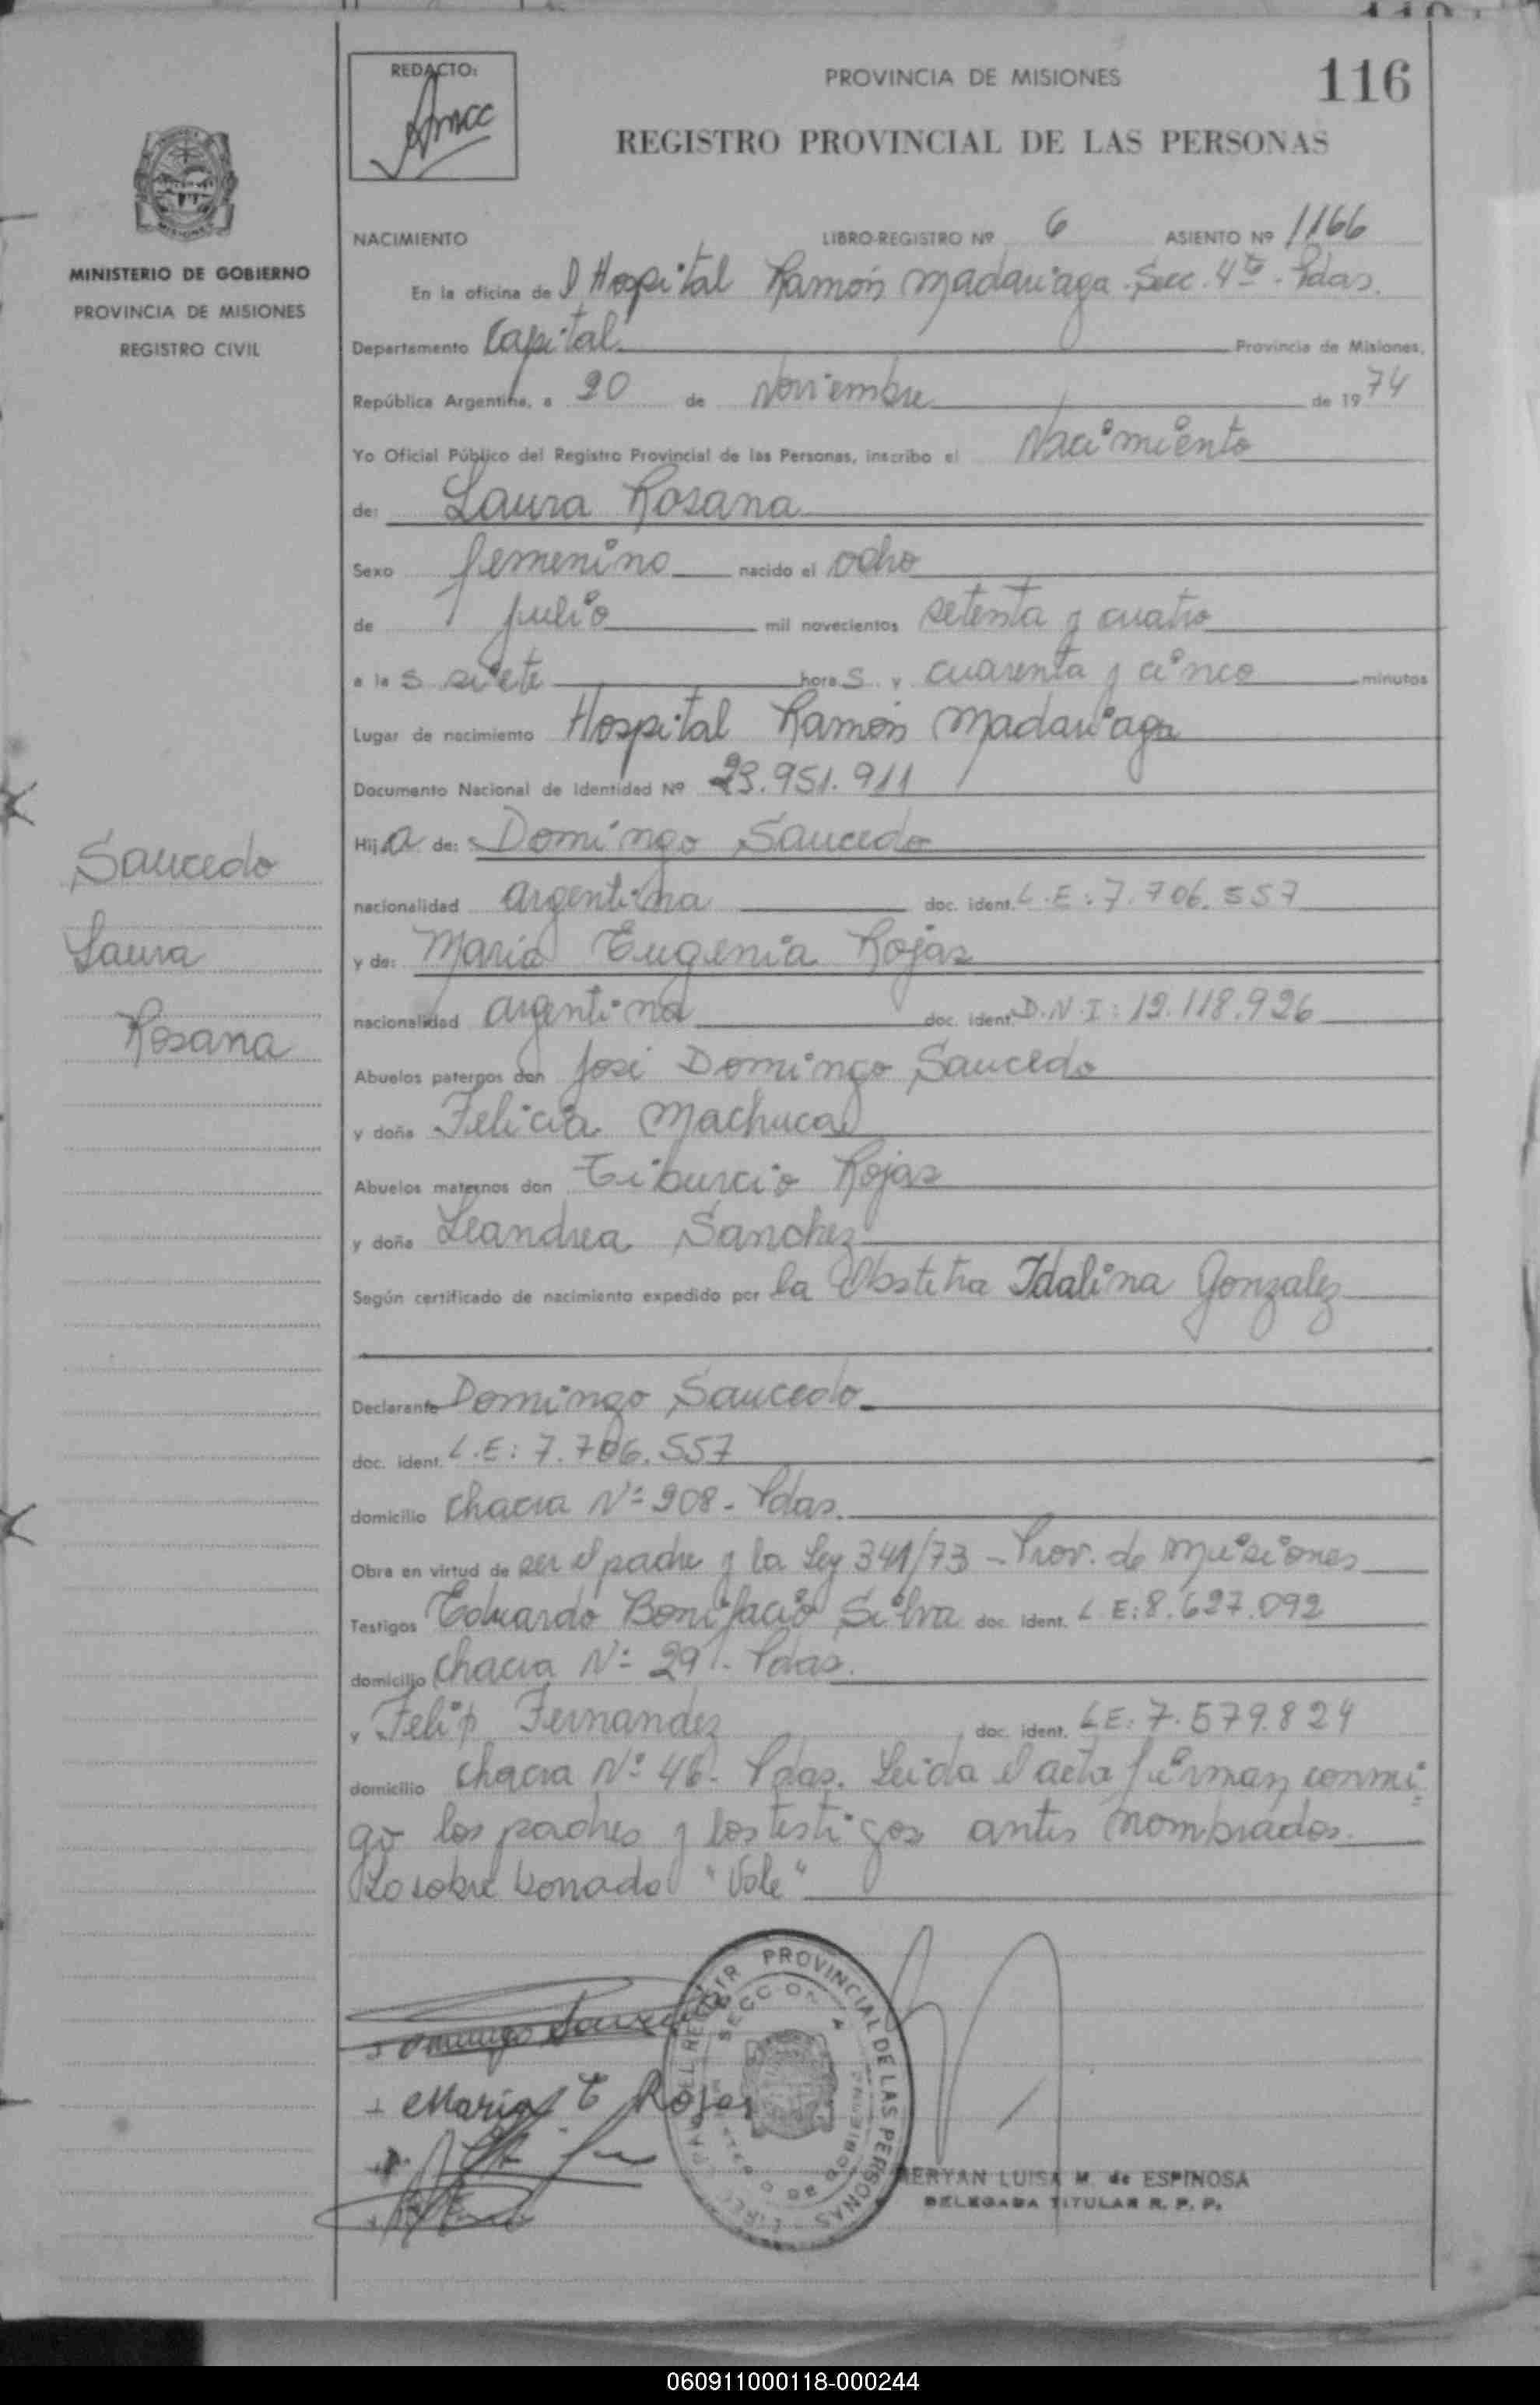 116
REDACTO:
PROVINCIA DE MISIONES
REGISTRO PROVINCIAL DE LAS PERSONAS
MINISTERIO DE GOBIERNO
PROVINCIA DE MISIONES
REGISTRO CIVIL
NACIMIENTO LIBRO-REGISTRO Nº 6 ASIENTO Nº 1166
En la oficina de l Hospital Ramón Madariaga. Secc. 4ta - Pdas.
Departamento Capital Provincia de Misiones,
República Argentina, a 20 de Noviembre de 1974
Yo Oficial Público del Registro Provincial de las Personas, inscribo el Nacimiento
de: Laura Rosana
Sexo femenino nacido el ocho
de julio mil novecientos setenta y cuatro
a las siete horas y cuarenta y cinco minutos
Lugar de nacimiento Hospital Ramón Madariaga
Documento Nacional de Identidad Nº 23.951.911
Hija de: Domingo Saucedo
nacionalidad argentina doc. ident. L.E: 7.706.557
y de: Maria Eugenia Rojas
nacionalidad argentina doc. ident. D.N.I: 12.118.926
Abuelos paternos don José Domingo Saucedo
y doña Felicia Machuca
Abuelos maternos don Tiburcio Rojas
y doña Leandrea Sanchez
Según certificado de nacimiento expedido por la Obstetra Idalina Gonzalez
Declarante Domingo Saucedo
doc. ident. L.E: 7.706.557
domicilio chacra Nº 908 - Pdas.
Obra en virtud de ser el padre y la Ley 341/73 - Prov. de Misiones
Testigos Eduardo Bonifacio Silva doc. ident. L.E: 8.627.092
domicilio chacra Nº 29 - Pdas.
y Felip Fernandez doc. ident. L.E: 7.579.824
domicilio chacra Nº 46 - Pdas. Leida el acta firman conmi
go los padres y los testigos antes nombrados.
Lo sobre borrado "Vale"
Saucedo
Laura
Rosana
Domingo Saucedo
Maria E Rojas
PROVINCIAL DE LAS PERSONAS
LUISA M. de ESPINOSA
DELEGADA TITULAR R. P. P.
060911000118-000244